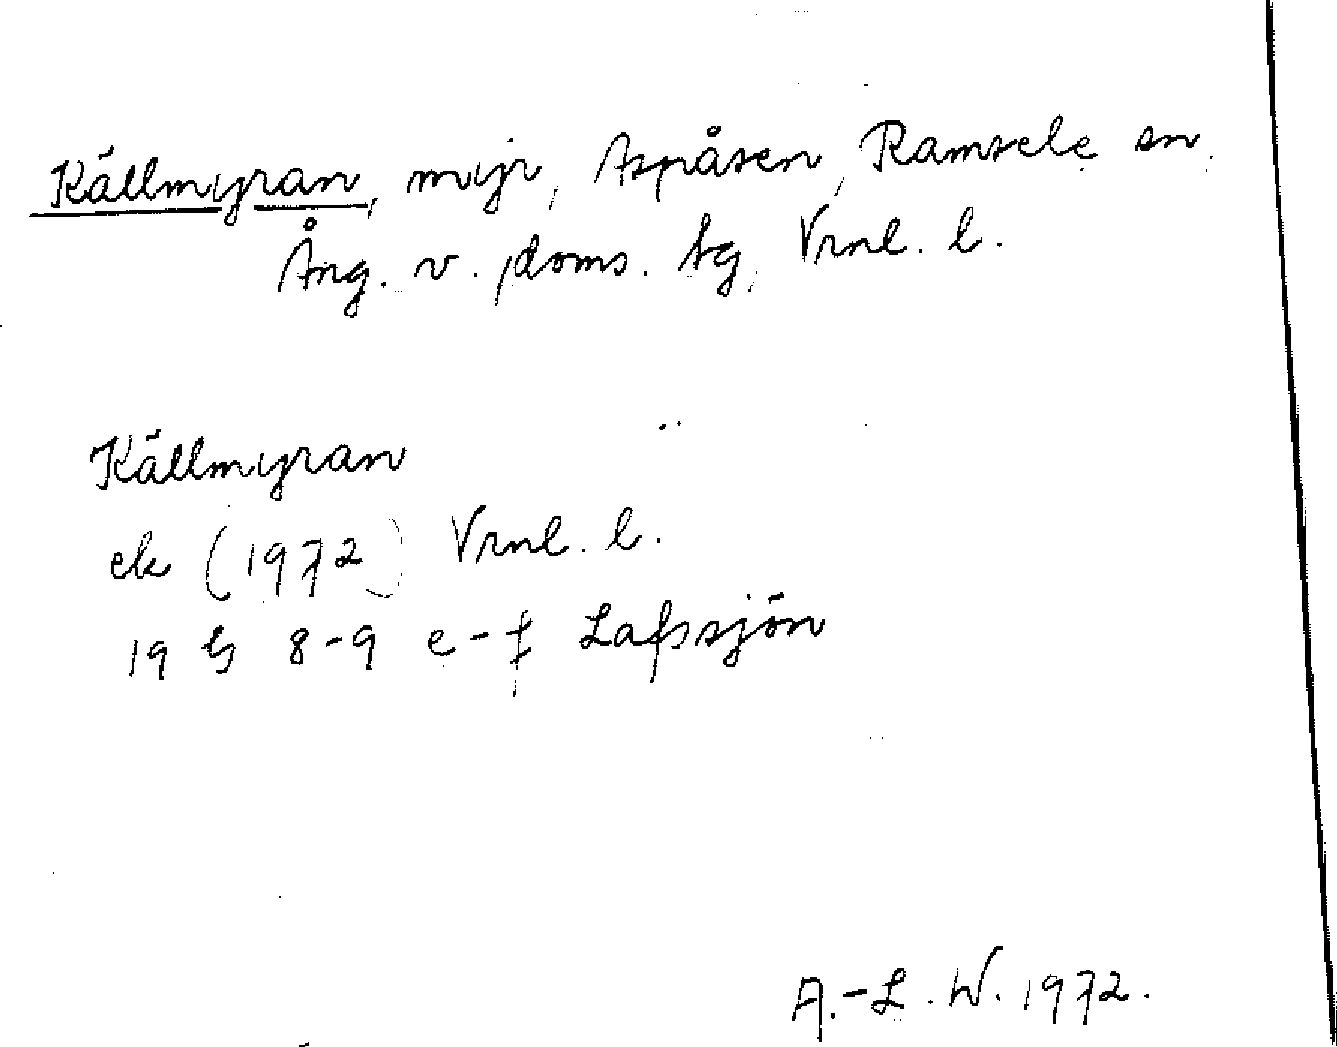 Källmyran, myr, Aspåsen, Ramsele sn
Ång. v. doms. tg, Vrnl. l.
Källmyran
ek (1972) Vrnl. l.
19 G 8-9 e-f Lafssjön
A.-L. W. 1972.